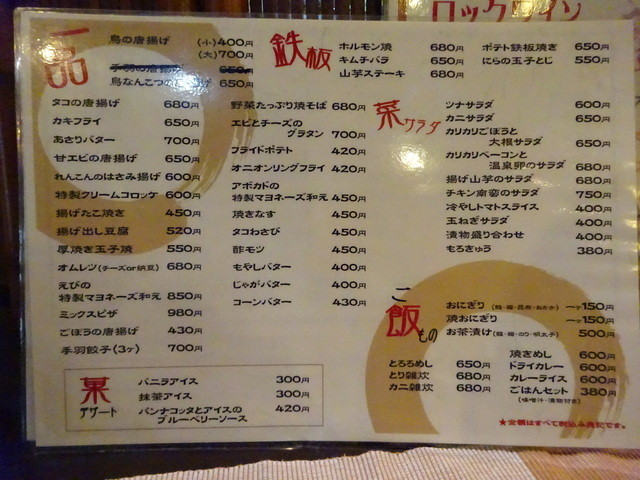 ロックワイン
一品
鳥の唐揚げ (小)400円
(大)700円
手羽の唐揚げ 650円
鳥なんこつの唐揚げ 650円
タコの唐揚げ 680円
カキフライ 650円
あさりバター 700円
甘エビの唐揚げ 650円
れんこんのはさみ揚げ 600円
特製クリームコロッケ 600円
揚げたこ焼き 450円
揚げ出し豆腐 520円
厚焼き玉子焼 550円
オムレツ(チーズor納豆) 680円
えびの
特製マヨネーズ和え 850円
ミックスピザ 980円
ごぼうの唐揚げ 430円
手羽餃子(3ヶ) 700円
野菜たっぷり焼そば 680円
エビとチーズの
グラタン 700円
フライドポテト 420円
オニオンリングフライ 420円
アボカドの
特製マヨネーズ和え 450円
焼きなす 450円
タコわさび 450円
酢モツ 450円
もやしバター 400円
じゃがバター 400円
コーンバター 430円
鉄板
ホルモン焼 680円
キムチバラ 650円
山芋ステーキ 680円
ポテト鉄板焼き 650円
にらの玉子とじ 550円
菜サラダ
ツナサラダ 600円
カニサラダ 650円
カリカリごぼうと
大根サラダ 650円
カリカリベーコンと
温泉卵のサラダ 680円
揚げ山芋のサラダ 680円
チキン南蛮のサラダ 750円
冷やしトマトスライス 400円
玉ねぎサラダ 400円
漬物盛り合わせ 400円
もろきゅう 380円
ご飯もの
おにぎり(鮭・梅・昆布・おかか) 一ヶ150円
焼おにぎり 一ヶ150円
お茶漬け(鮭・梅・のり・明太子) 500円
とろろめし 650円
とり雑炊 680円
カニ雑炊 680円
焼きめし 600円
ドライカレー 600円
カレーライス 600円
ごはんセット 380円
(味噌汁・漬物付き)
★金額はすべて税込み表記です。
菓
デザート
バニラアイス 300円
抹茶アイス 300円
パンナコッタとアイスの 420円
ブルーベリーソース